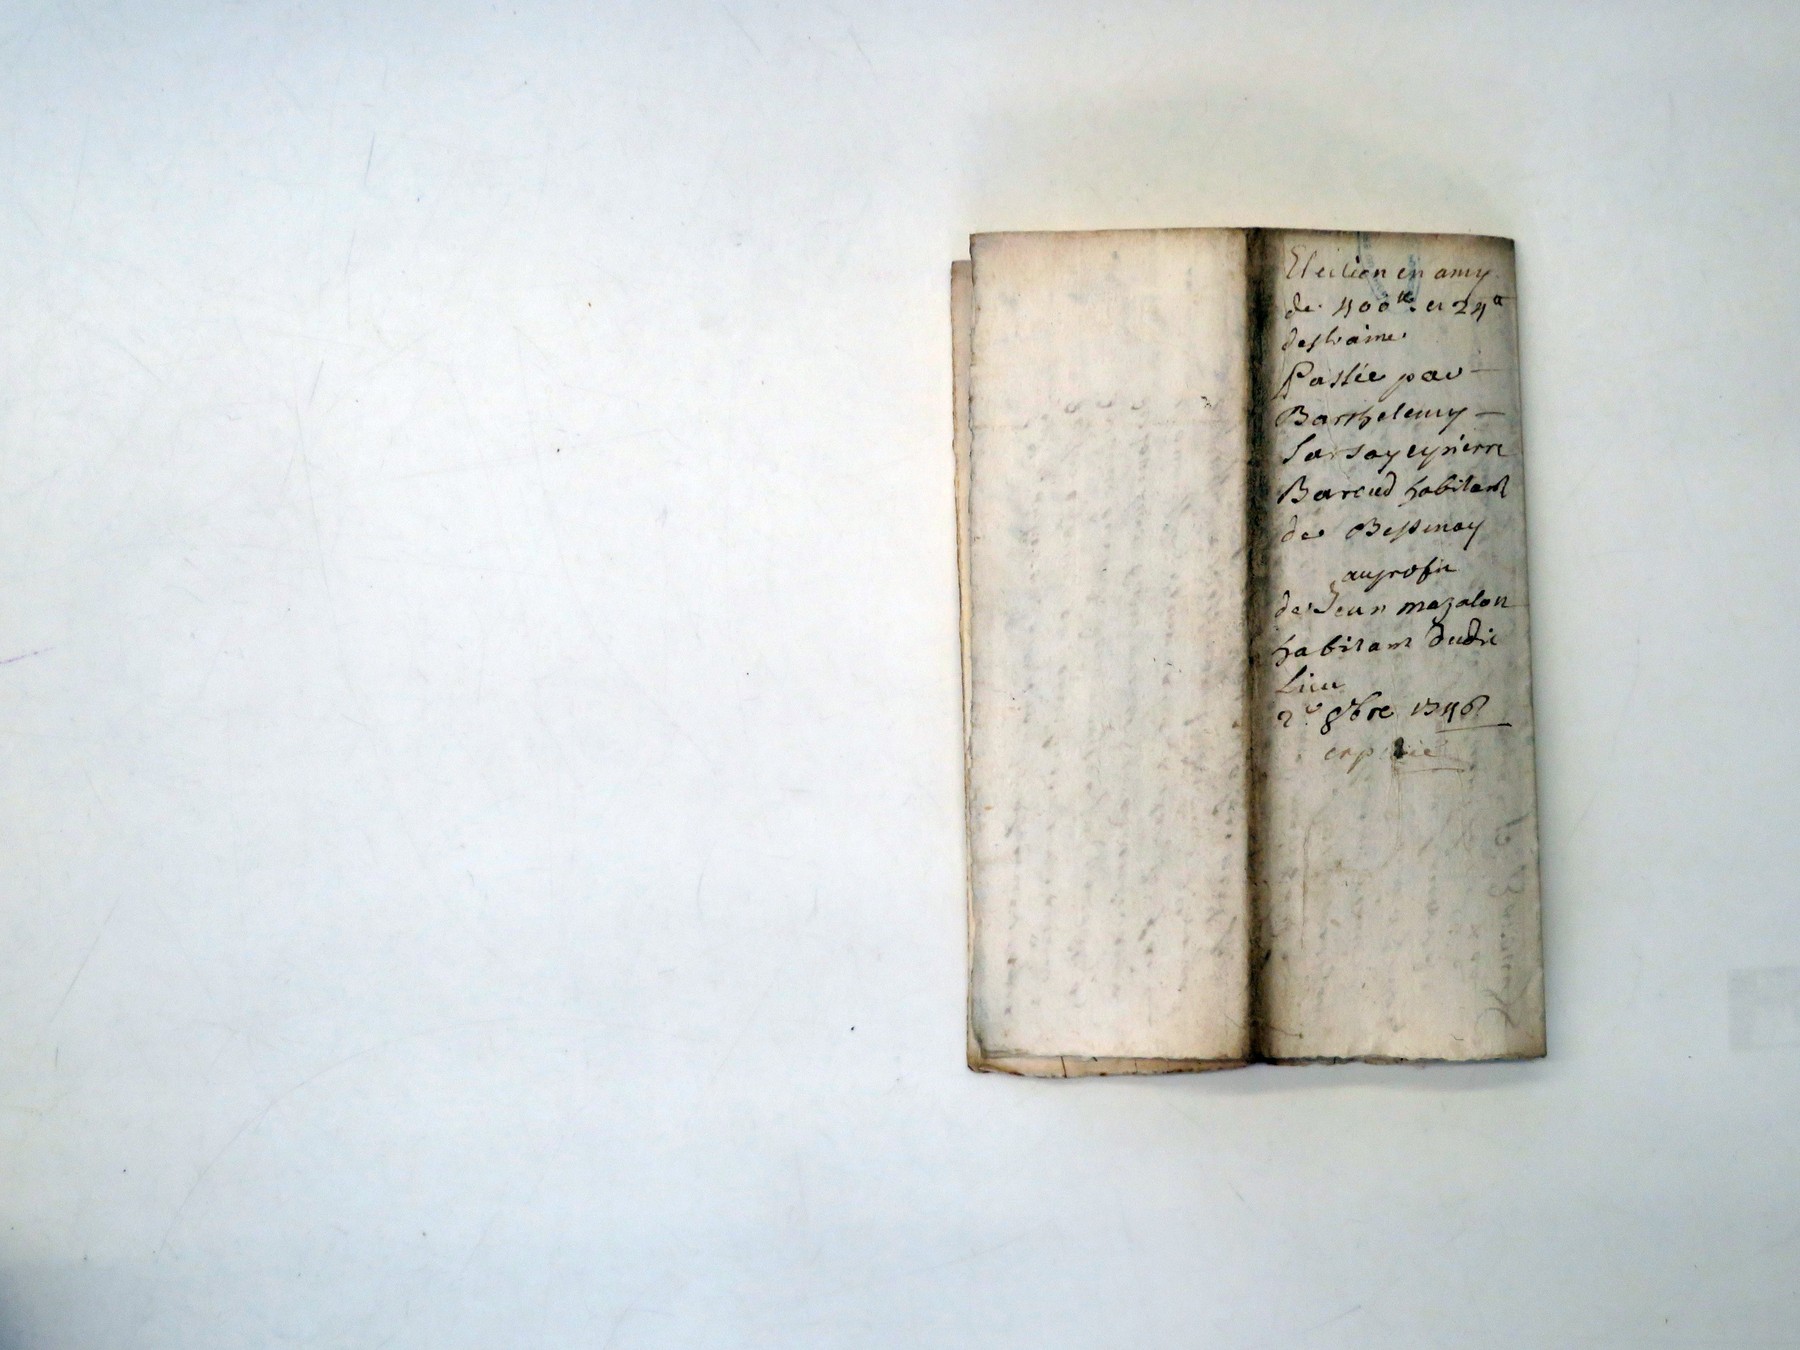 Election en amy
de 400ᵗᵗ. et 24ᵗᵗ
destraine
Passée par
Barthelemy
Sarsay eypierre
Baroud habitant
de Bessenay
auprofit
de Jean mazalon
habitant dudit
Lieu
2ᵉ 8bre 1746